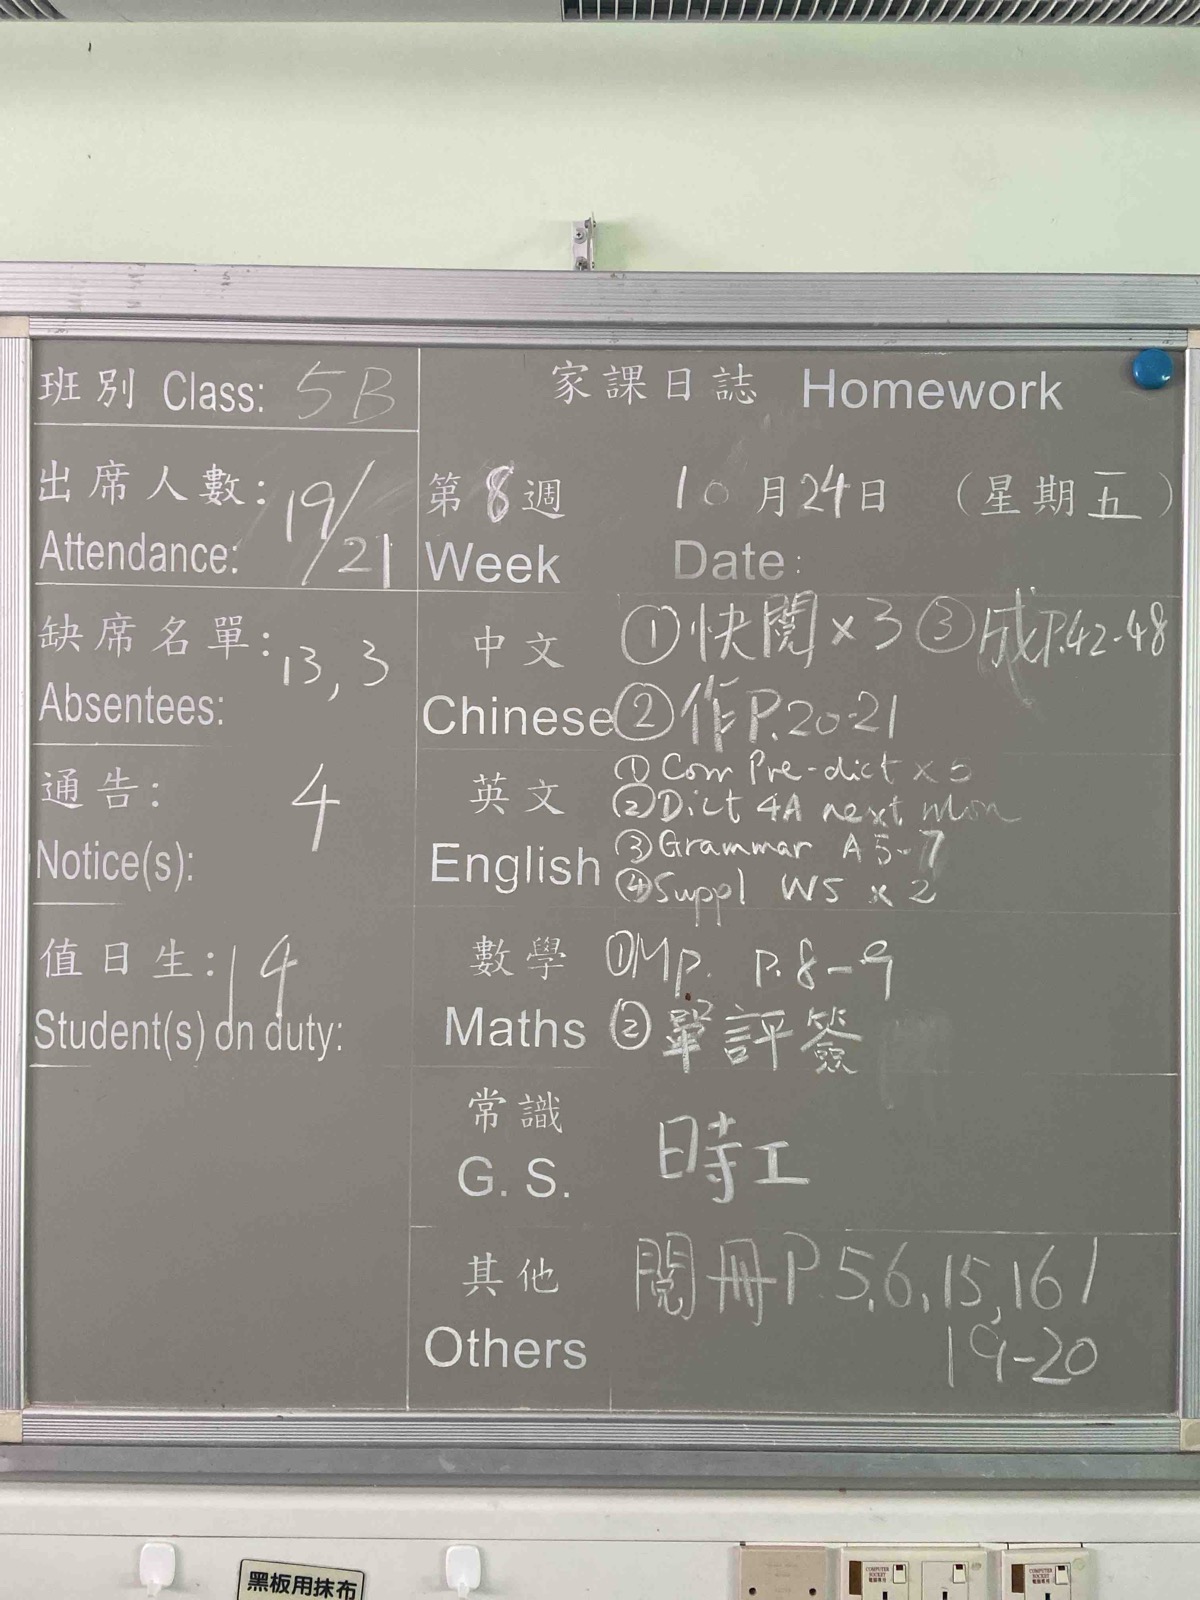 班別 Class: 5B
出席人數: 19/21
Attendance:
缺席名單: 13, 3
Absentees:
通告: 4
Notice(s):
值日生: 14
Student(s) on duty:
家課日誌 Homework
第8週 10月24日 (星期五)
Week Date:
中文 ①快閱×3 ③成P.42-48
Chinese ②作P.20-21
英文
English
①Corr Pre-dict × 5
②Dict 4A next Mon
③Grammar A5-7
④Suppl WS × 2
數學 ①Mp. P.8-9
Maths ②單評簽
常識
G. S.
時工
其他 閱冊P.5,6,15,16/
Others 19-20
黑板用抹布
COMPUTER SOCKET
電腦專用
COMPUTER SOCKET
電腦專用